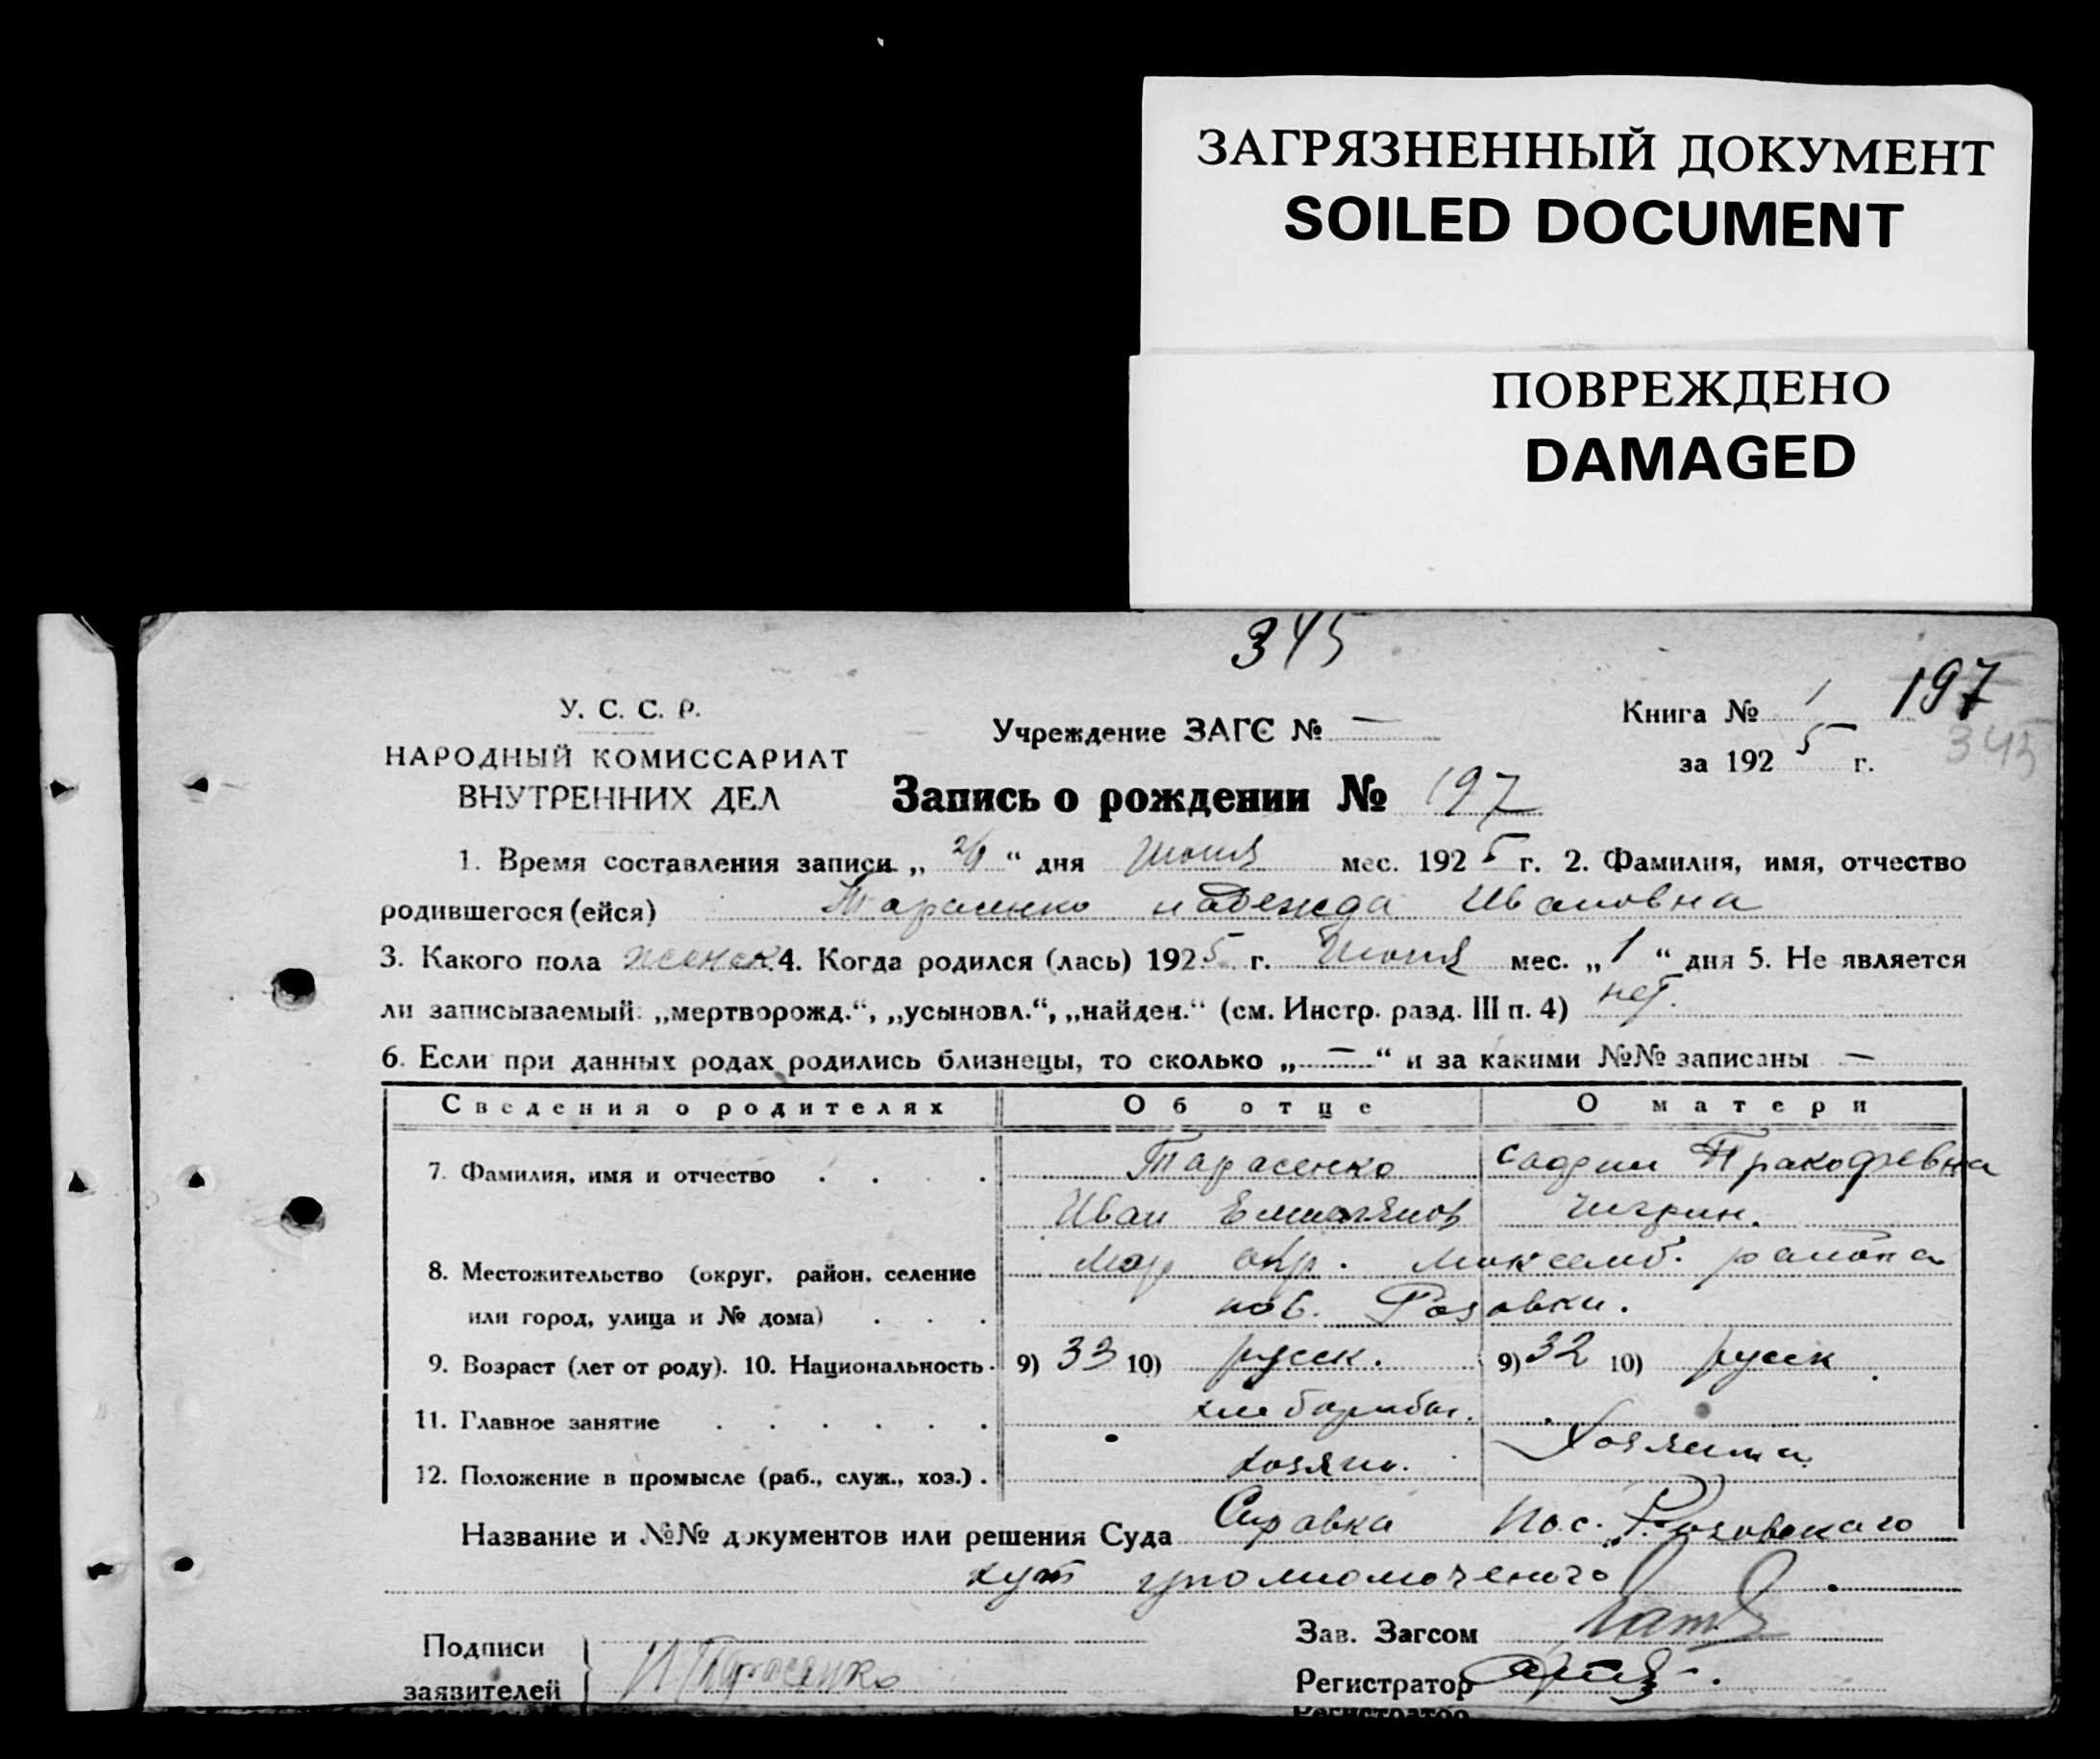 ЗАГРЯЗНЕННЫЙ ДОКУМЕНТ
SOILED DOCUMENT
ПОВРЕЖДЕНО
DAMAGED
345
У. С. С. Р.
Учреждение ЗАГС № —
Книга № 1 197
НАРОДНЫЙ КОМИССАРИАТ
за 1925 г. 345
ВНУТРЕННИХ ДЕЛ
Запись о рождении № 197
1. Время составления записи „ “ дня Июня мес. 1925 г. 2. Фамилия, имя, отчество
родившегося (ейся) Тарасенко Надежда Ивановна
3. Какого пола женск 4. Когда родился (лась) 1925 г. Июня мес. „1“ дня 5. Не является
ли записываемый: „мертворожд.“, „усыновл.“, „найден.“ (см. Инстр. разд. III п. 4) нет.
6. Если при данных родах родились близнецы, то сколько „—“ и за какими №№ записаны —
Сведения о родителях Об отце О матери
7. Фамилия, имя и отчество Тарасенко Пракофевна
Иван Чигрин.
8. Местожительство (округ, район, селение Мар окр. района
или город, улица и № дома) Розовки.
9. Возраст (лет от роду). 10. Национальность 9) 33 10) русск. 9) 32 10) русск
11. Главное занятие
12. Положение в промысле (раб., служ., хоз.) хозяин. Хозяйка
Название и №№ документов или решения Суда Справка пос. Розовскаго
хут уполномоченого
Подписи Зав. Загсом
заявителей И Тарасенко Регистратор
Регистратор